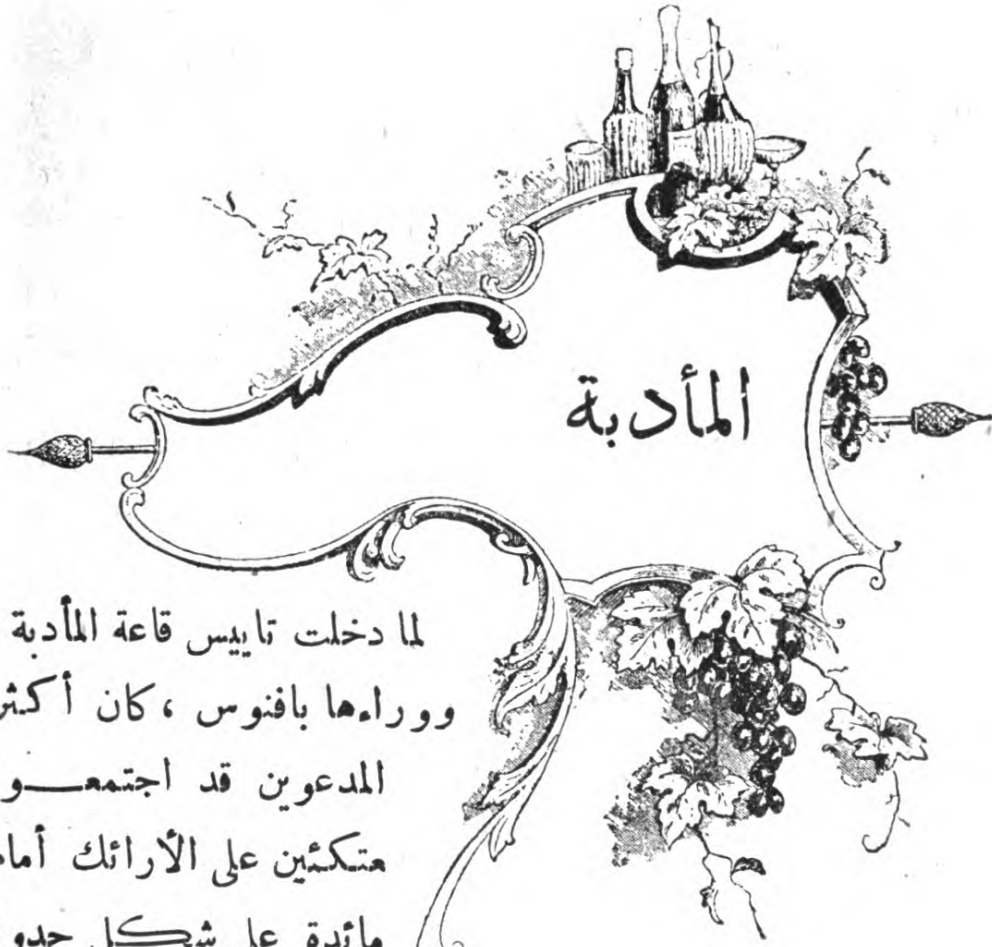 المأدبة
لما دخلت تاييس قاعة المأدبة
ووراءها بافنوس ، كان أكثر
المدعوين قد
متكئين على الأرائك
مائدة على شكل